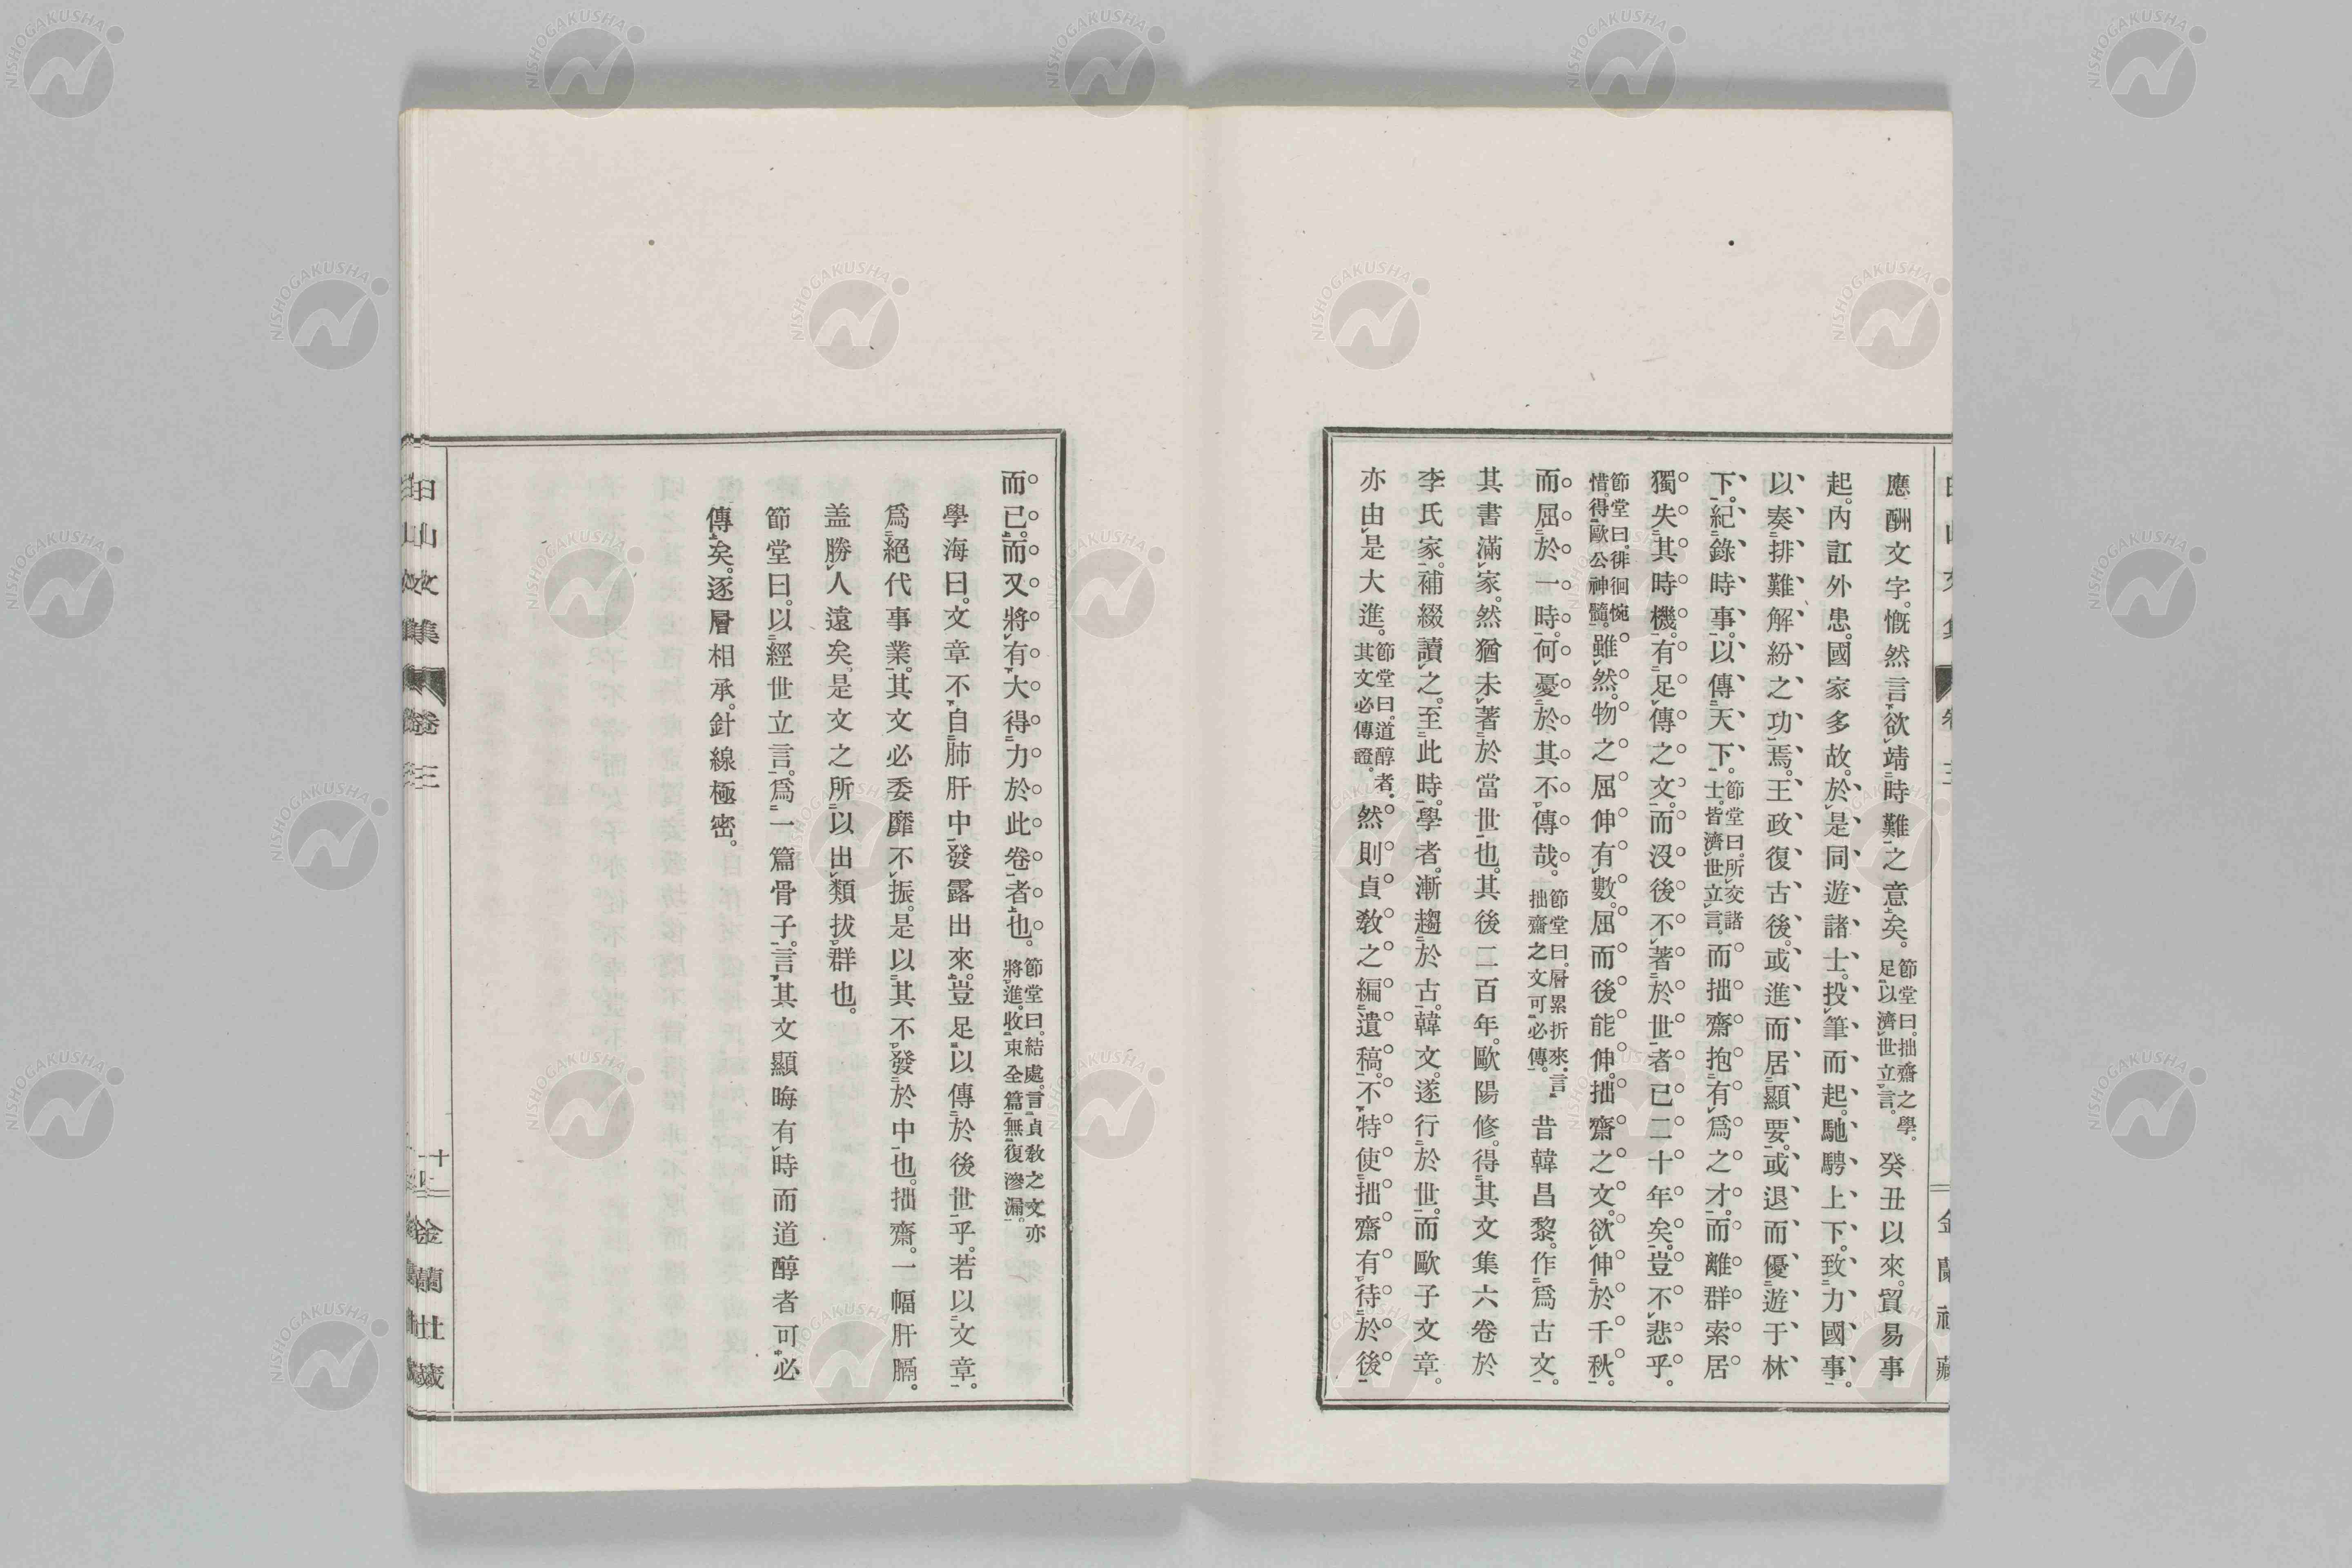 應酬文字。慨然言欲靖時難之意矣。節堂曰。拙齋之學。足以濟世立言。癸丑以來。貿易事
起。內訌外患。國家多故。於是同遊諸士。投筆而起。馳騁上下。致力國事。
以奏排難解紛之功焉。王政復古後。或進而居顯要。或退而優遊于林
下。紀錄時事。以傳天下。節堂曰。所交諸士。皆濟世立言。而拙齋抱有爲之才。而離群索居
獨失其時機。有足傳之文。而沒後不著於世者已二十年矣。豈不悲乎。
節堂曰。徘徊惋惜。得歐公神髓。雖然。物之屈伸有數。屈而後能伸。拙齋之文。欲伸於千秋。
而屈於一時。何憂於其不傳哉。節堂曰。層累折來。言拙齋之文可必傳。昔韓昌黎。作爲古文。
其書滿家。然猶未著於當世也。其後二百年。歐陽修。得其文集六卷於
李氏家。補綴讀之。至此時。學者。漸趨於古。韓文。遂行於世。而歐子文章。
亦由是大進。節堂曰。道醇者。其文必傳證。然則貞敎之編遺稿。不特使拙齋有待於後
而已。而又將有大得力於此卷者也。節堂曰。結處。言貞敎之文亦將進。收束全篇無復滲漏。
學海曰。文章不自肺肝中發露出來。豈足以傳於後世乎。若以文章。
爲絕代事業。其文必委靡不振。是以其不發於中也。拙齋。一幅肝膈。
盖勝人遠矣。是文之所以出類拔群也。
節堂曰。以經世立言。爲一篇骨子。言其文顯晦有時而道醇者可必
傳矣。逐層相承。針線極密。
田山文集 卷三 金蘭社藏
NISHOGAKUSHA